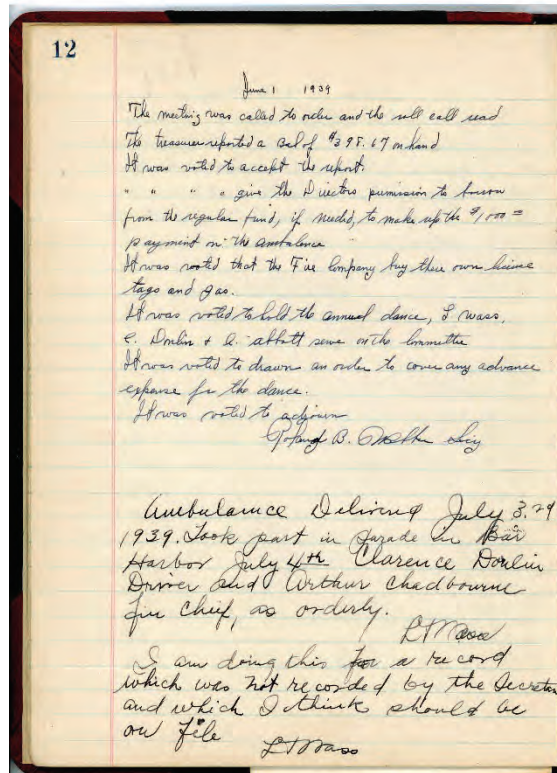 12
June 1 1939
The meeting was called to order and the roll call read
The treasurer reported a Bal of $398.67 on hand
It was voted to accept the report.
" " " " give the Directors permission to borrow
from the regular fund, if needed, to make up the $1,000 =
payment on the ambulance
It was voted that the Fire Company buy there own license
tags and gas.
It was voted to hold the annual dance, L Wass,
C. Donlin & A. Abbott serve on the Committee
It was voted to drawn an order to cover any advance
expense for the dance.
It was voted to adjourn
B. Secy
Ambulance Delivered July 3.
1939. Took part in parade in Bar
Harbor July 4th Clarence Donlin
Driver and Arthur Chadbourne
fire Chief, as orderly.
L T Wass
I am doing this for a record
which was not recorded by the Secretary
and which I think should be
on file
L T Wass